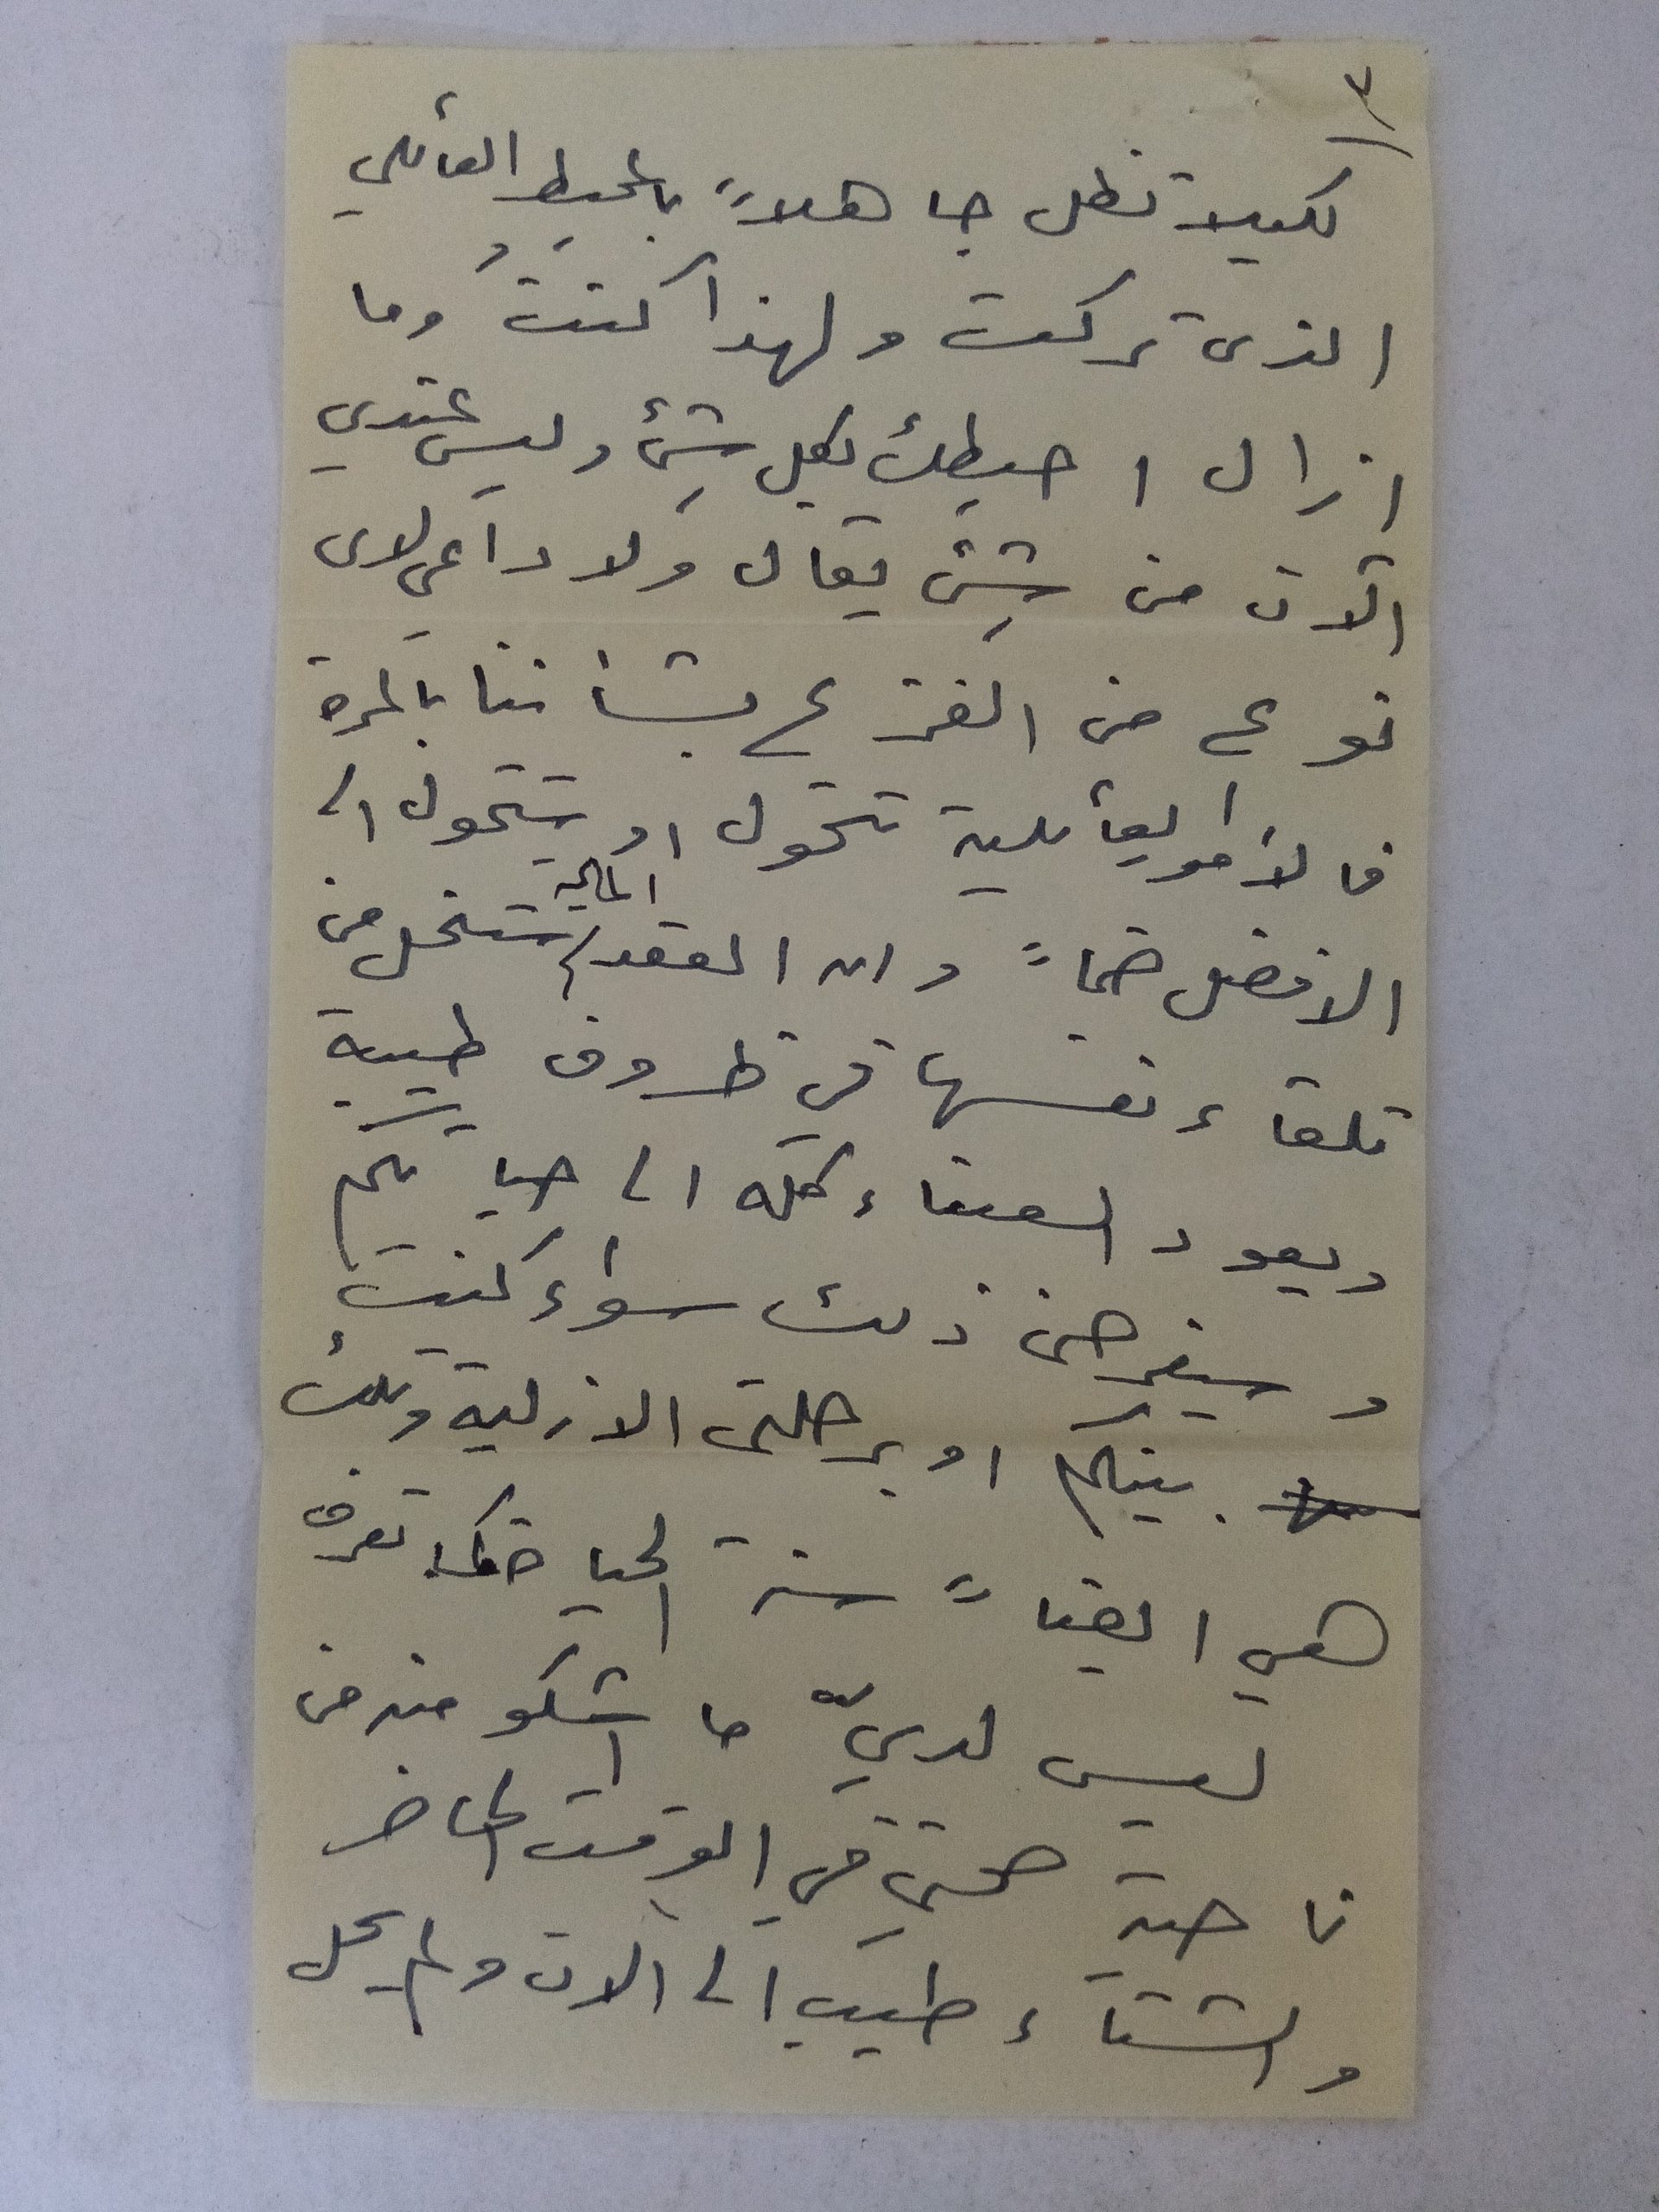 ٧
لكيلا تظل جاهلاً بالمحيط العائلي
الذى تركت ولهذا كنتُ وما
ازال احيطك بكل شئ وليس عندي
الآن من شئ يقال ولا داعي لاى
نوع من الفزع بشاننا بالمرة
فالأمور العائلية تتحول او ستتحول الى
الافضل حتماً وان العقد المالية ستنحل من
تلقاء نفسها في ظروف طيبة
ويعود الصفاء كله الى حياتكم
وسيفرحنى ذلك سواء كنت
بينكم او برحلتى الازلية وتلك
هي ايضاً سنة الحياة كما تعرف
ليس لديّ ما اشكو منه من
ناحية صحتي في الوقت الحاضر
والشتاء طيب الى الآن ولم يحل